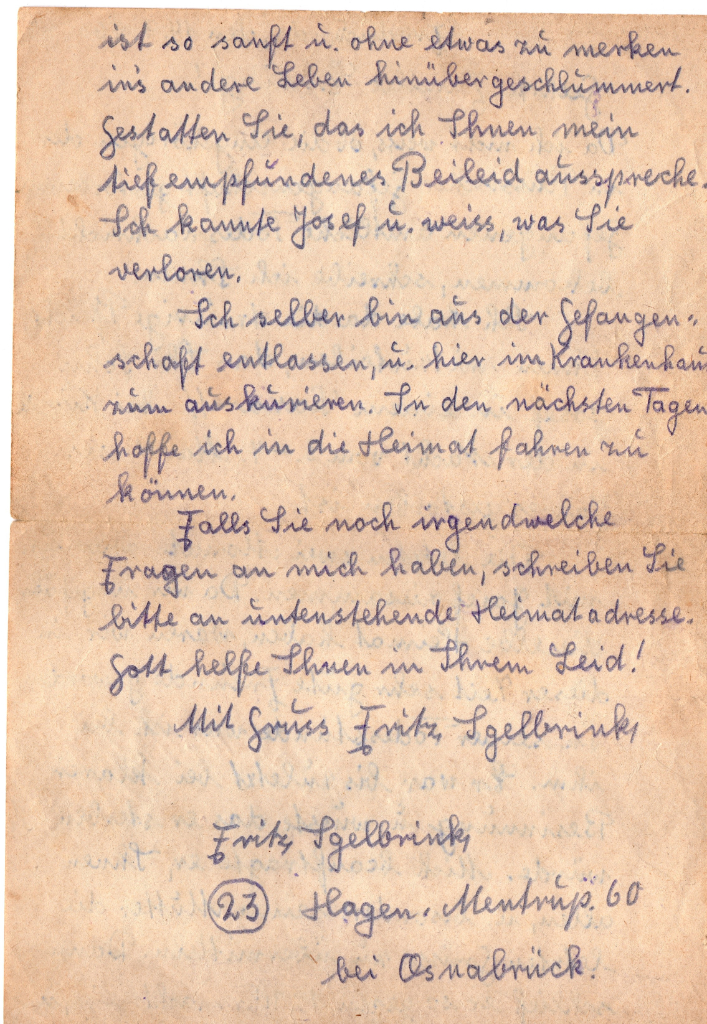 ist so sanft u. ohne etwas zu merken
in's andere Leben hinübergeschlummert.
Gestatten Sie, das ich Ihnen mein
tief empfundenes Beileid ausspreche.
Ich kannte Josef u. weiss, was Sie
verloren.
Ich selber bin aus der Gefangen-
schaft entlassen, u. hier im Krankenhaus
zum auskurieren. In den nächsten Tagen
hoffe ich in die Heimat fahren zu
können.
Falls Sie noch irgendwelche
Fragen an mich haben, schreiben Sie
bitte an untenstehende Heimatadresse.
Gott helfe Ihnen in Ihrem Leid!
Mit Gruss Fritz Igelbrink,
Fritz Igelbrink,
23 Hagen. Mentrup. 60
bei Osnabrück.